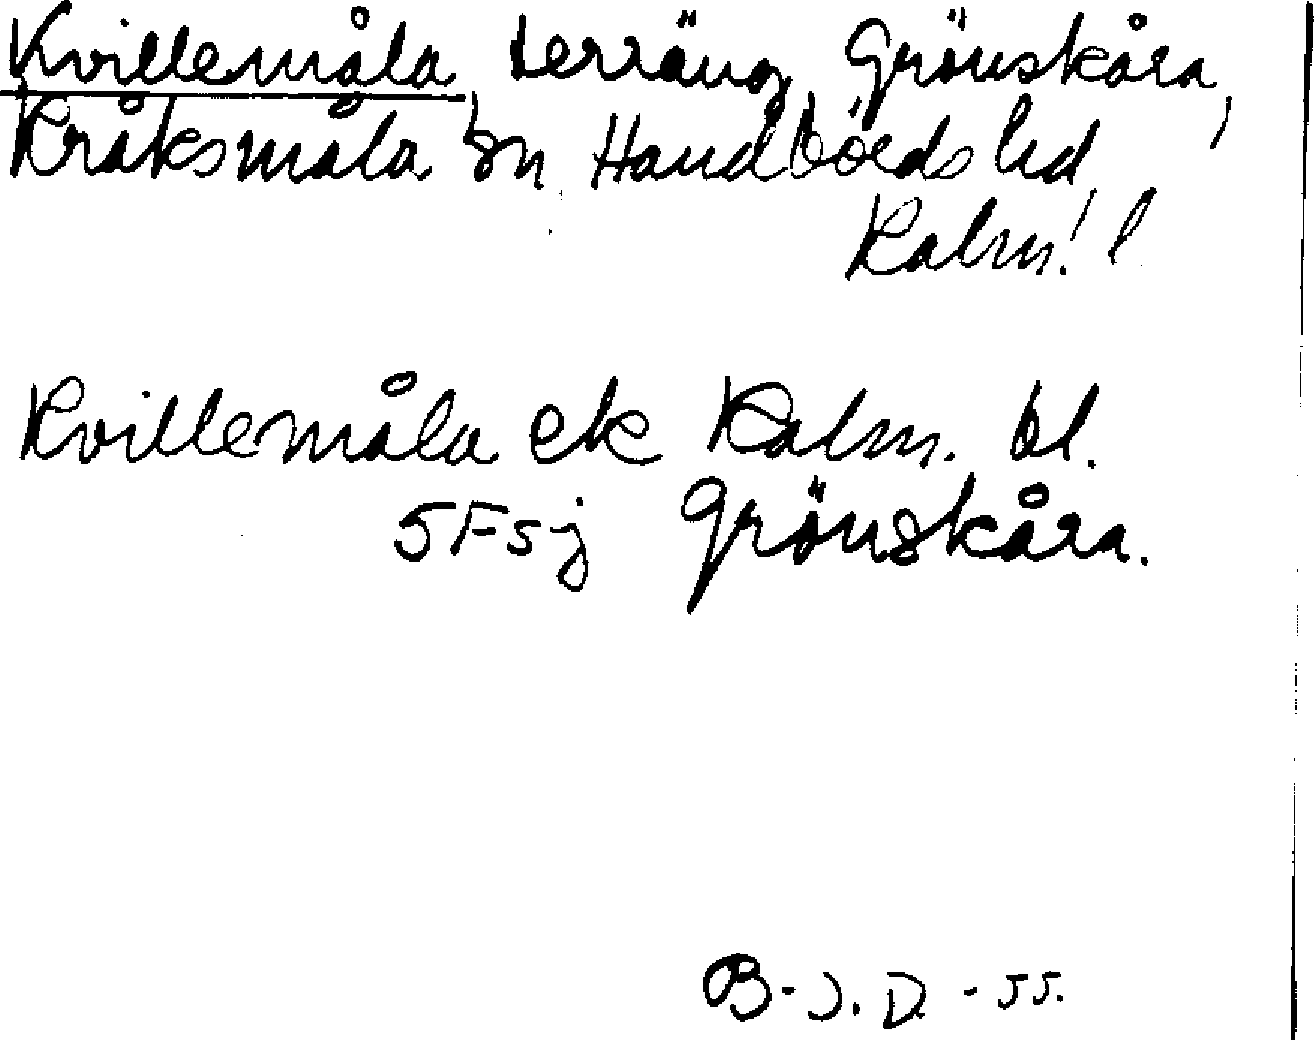 Kvillemåla terräng Grönskåra,
Kråksmåla sn Handbörds hd
Kalm. l
Kvillemåla ek Kalm. bl.
5F5j Grönskåra.
B-J. D. -55.